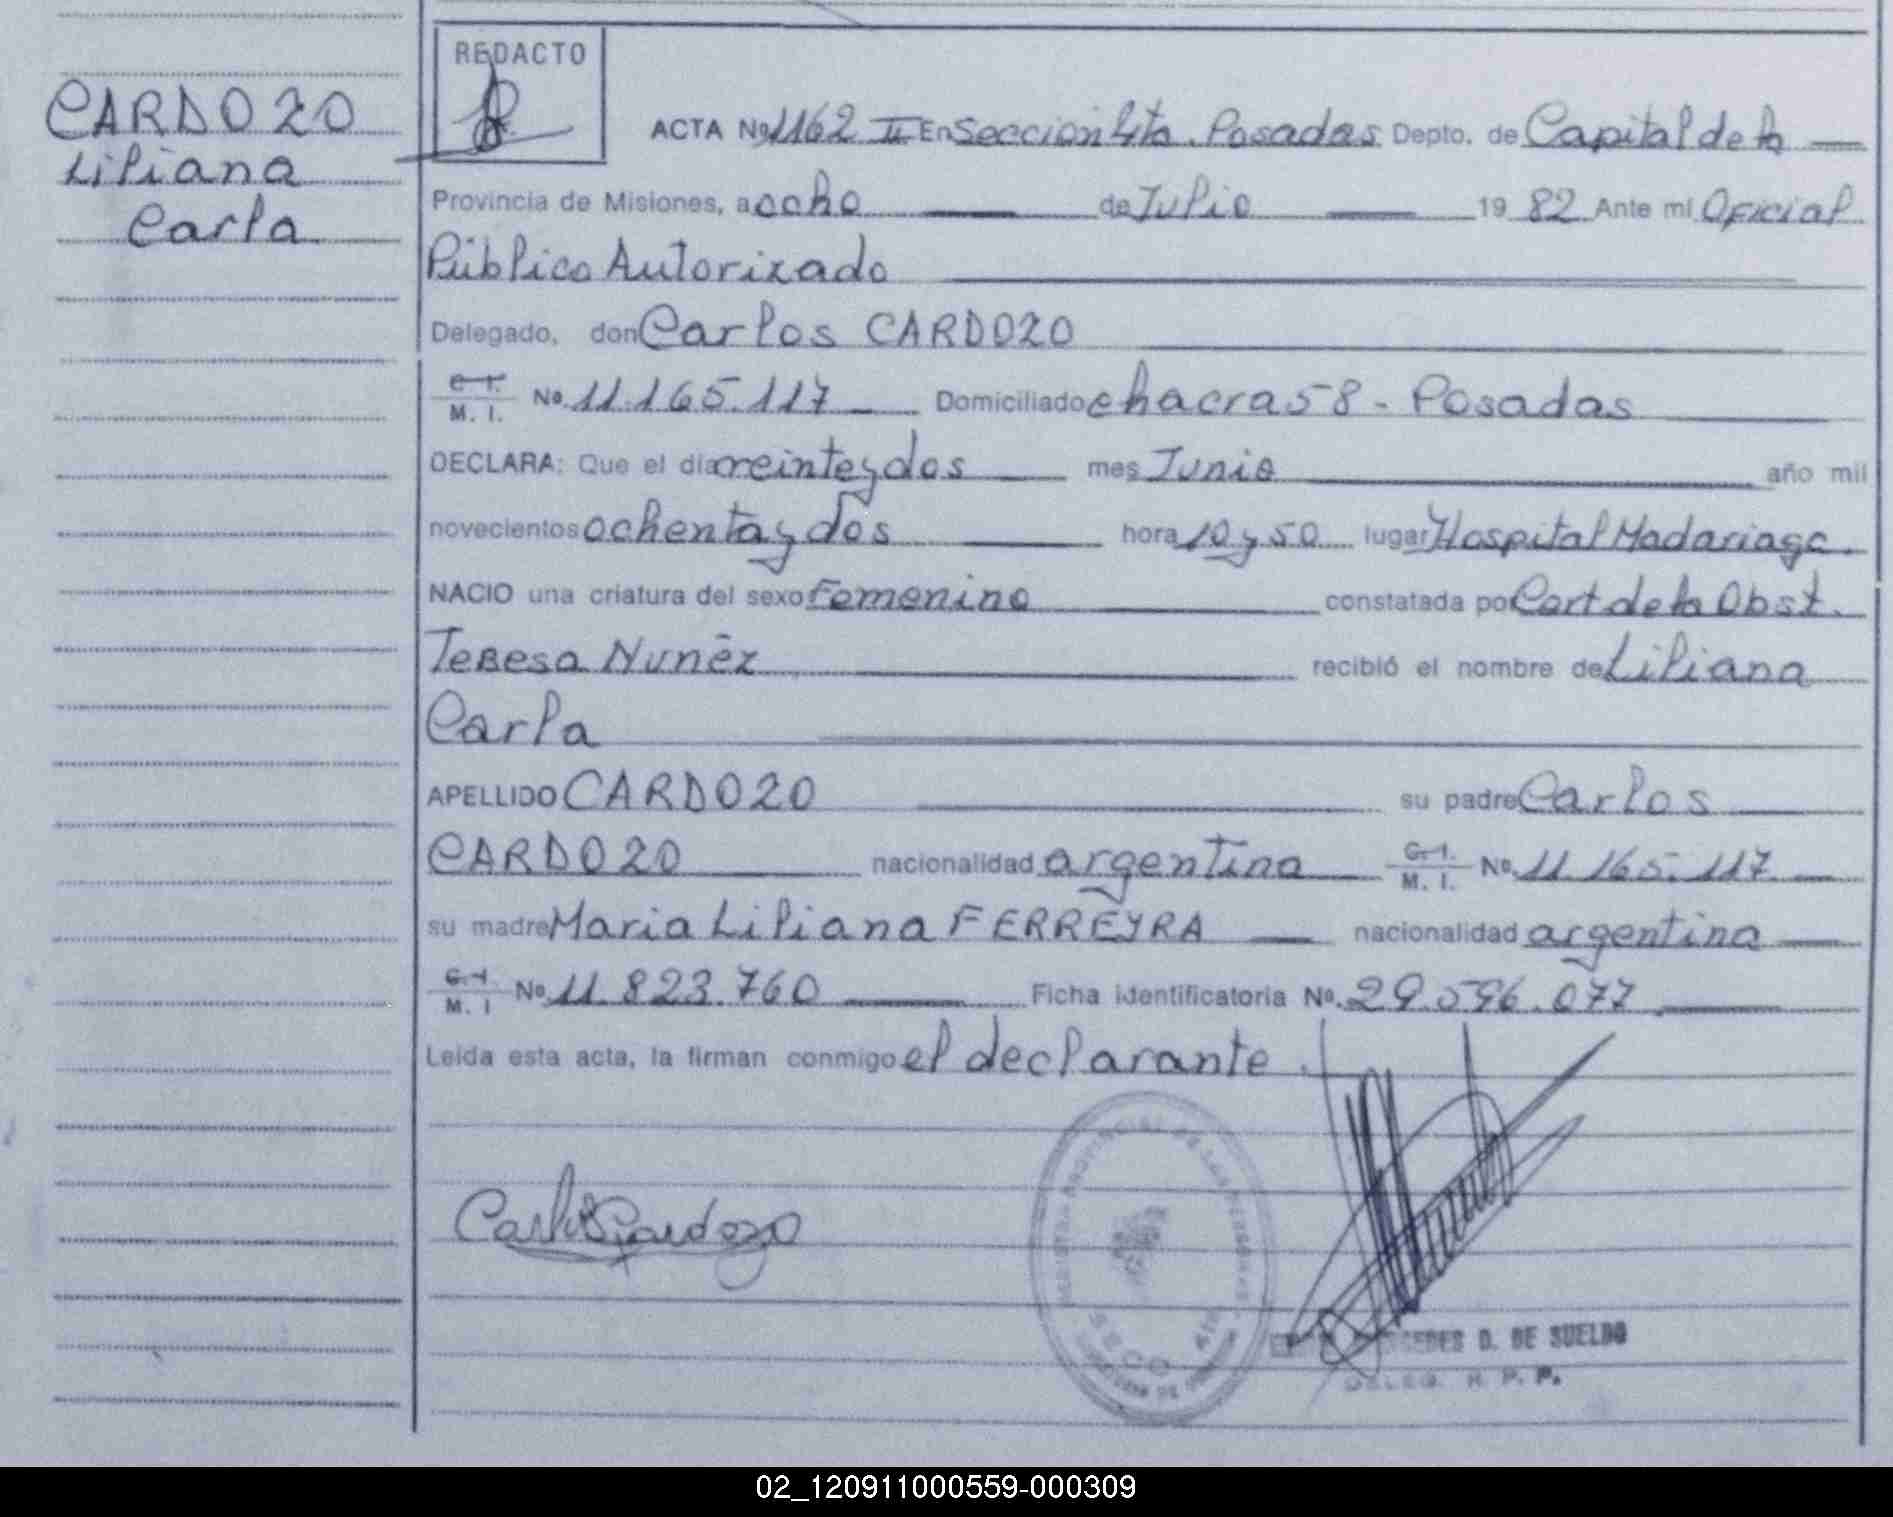 CARDOZO
Liliana
Carla
REDACTO
ACTA No. 1162 II En Sección 4ta. Posadas Depto. de Capital de la
Provincia de Misiones, a ocho de Julio 19 82 Ante mi Oficial
Público Autorizado
Delegado, don Carlos CARDOZO
C. I. M. I. No. 11.165.117 Domiciliado chacra 58 - Posadas
DECLARA: Que el día veinteydos mes Junio año mil
novecientos ochenta y dos hora 10 y 50 lugar Hospital Madariaga.
NACIO una criatura del sexo Femenino constatada por Cert de la Obst.
Teresa Nuñez recibió el nombre de Liliana
Carla
APELLIDO CARDOZO su padre Carlos
CARDOZO nacionalidad argentina C. I. M. I. No. 11.165.117
su madre Maria Liliana FERREYRA nacionalidad argentina
C. I. M. I No. 11.823.760 Ficha identificatoria No. 29.596.077
Leida esta acta, la firman conmigo el declarante.
Carlos Cardozo
PROVINCIAL DE LAS PERSONAS
SECC. 4ta
D. DE SUELDO
DELEG. R. P. P.
02_120911000559-000309